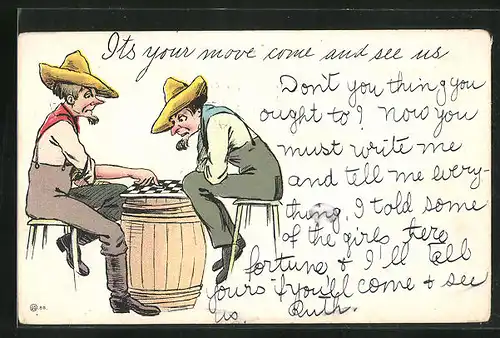 Its your move come and see us
Don't you thing you
ought to? Now you
must write me
and tell me every-
thing. I told some
of the girls, here
fortune & I'll tell
yours if you'll come & see
us. Ruth.